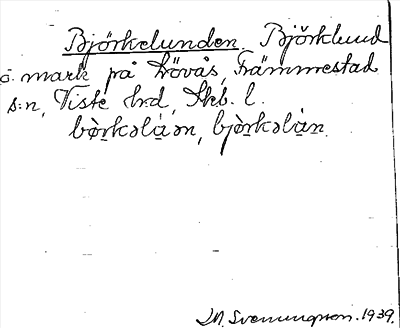 Björkelunden. Björklund
ö. mark på Lövås, Främmestad
s:n, Viste hrd, Skb. l.
bø̀rkəlàən, bjø̀rkəlàn.
Svenungsson. 1939.